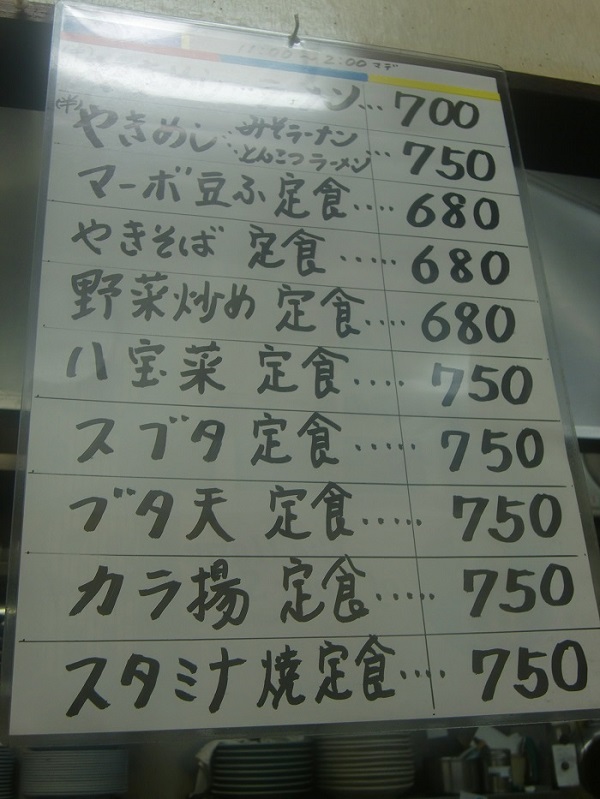 11:00〜2:00マデ
ラーメン…700
(半)やきめし…みそラーメン
とんこつラーメン…750
マーボ豆ふ定食….680
やきそば 定食….680
野菜炒め 定食….680
八宝菜 定食….750
スブタ定食…..750
ブタ天 定食…..750
カラ揚 定食…..750
スタミナ焼定食….750